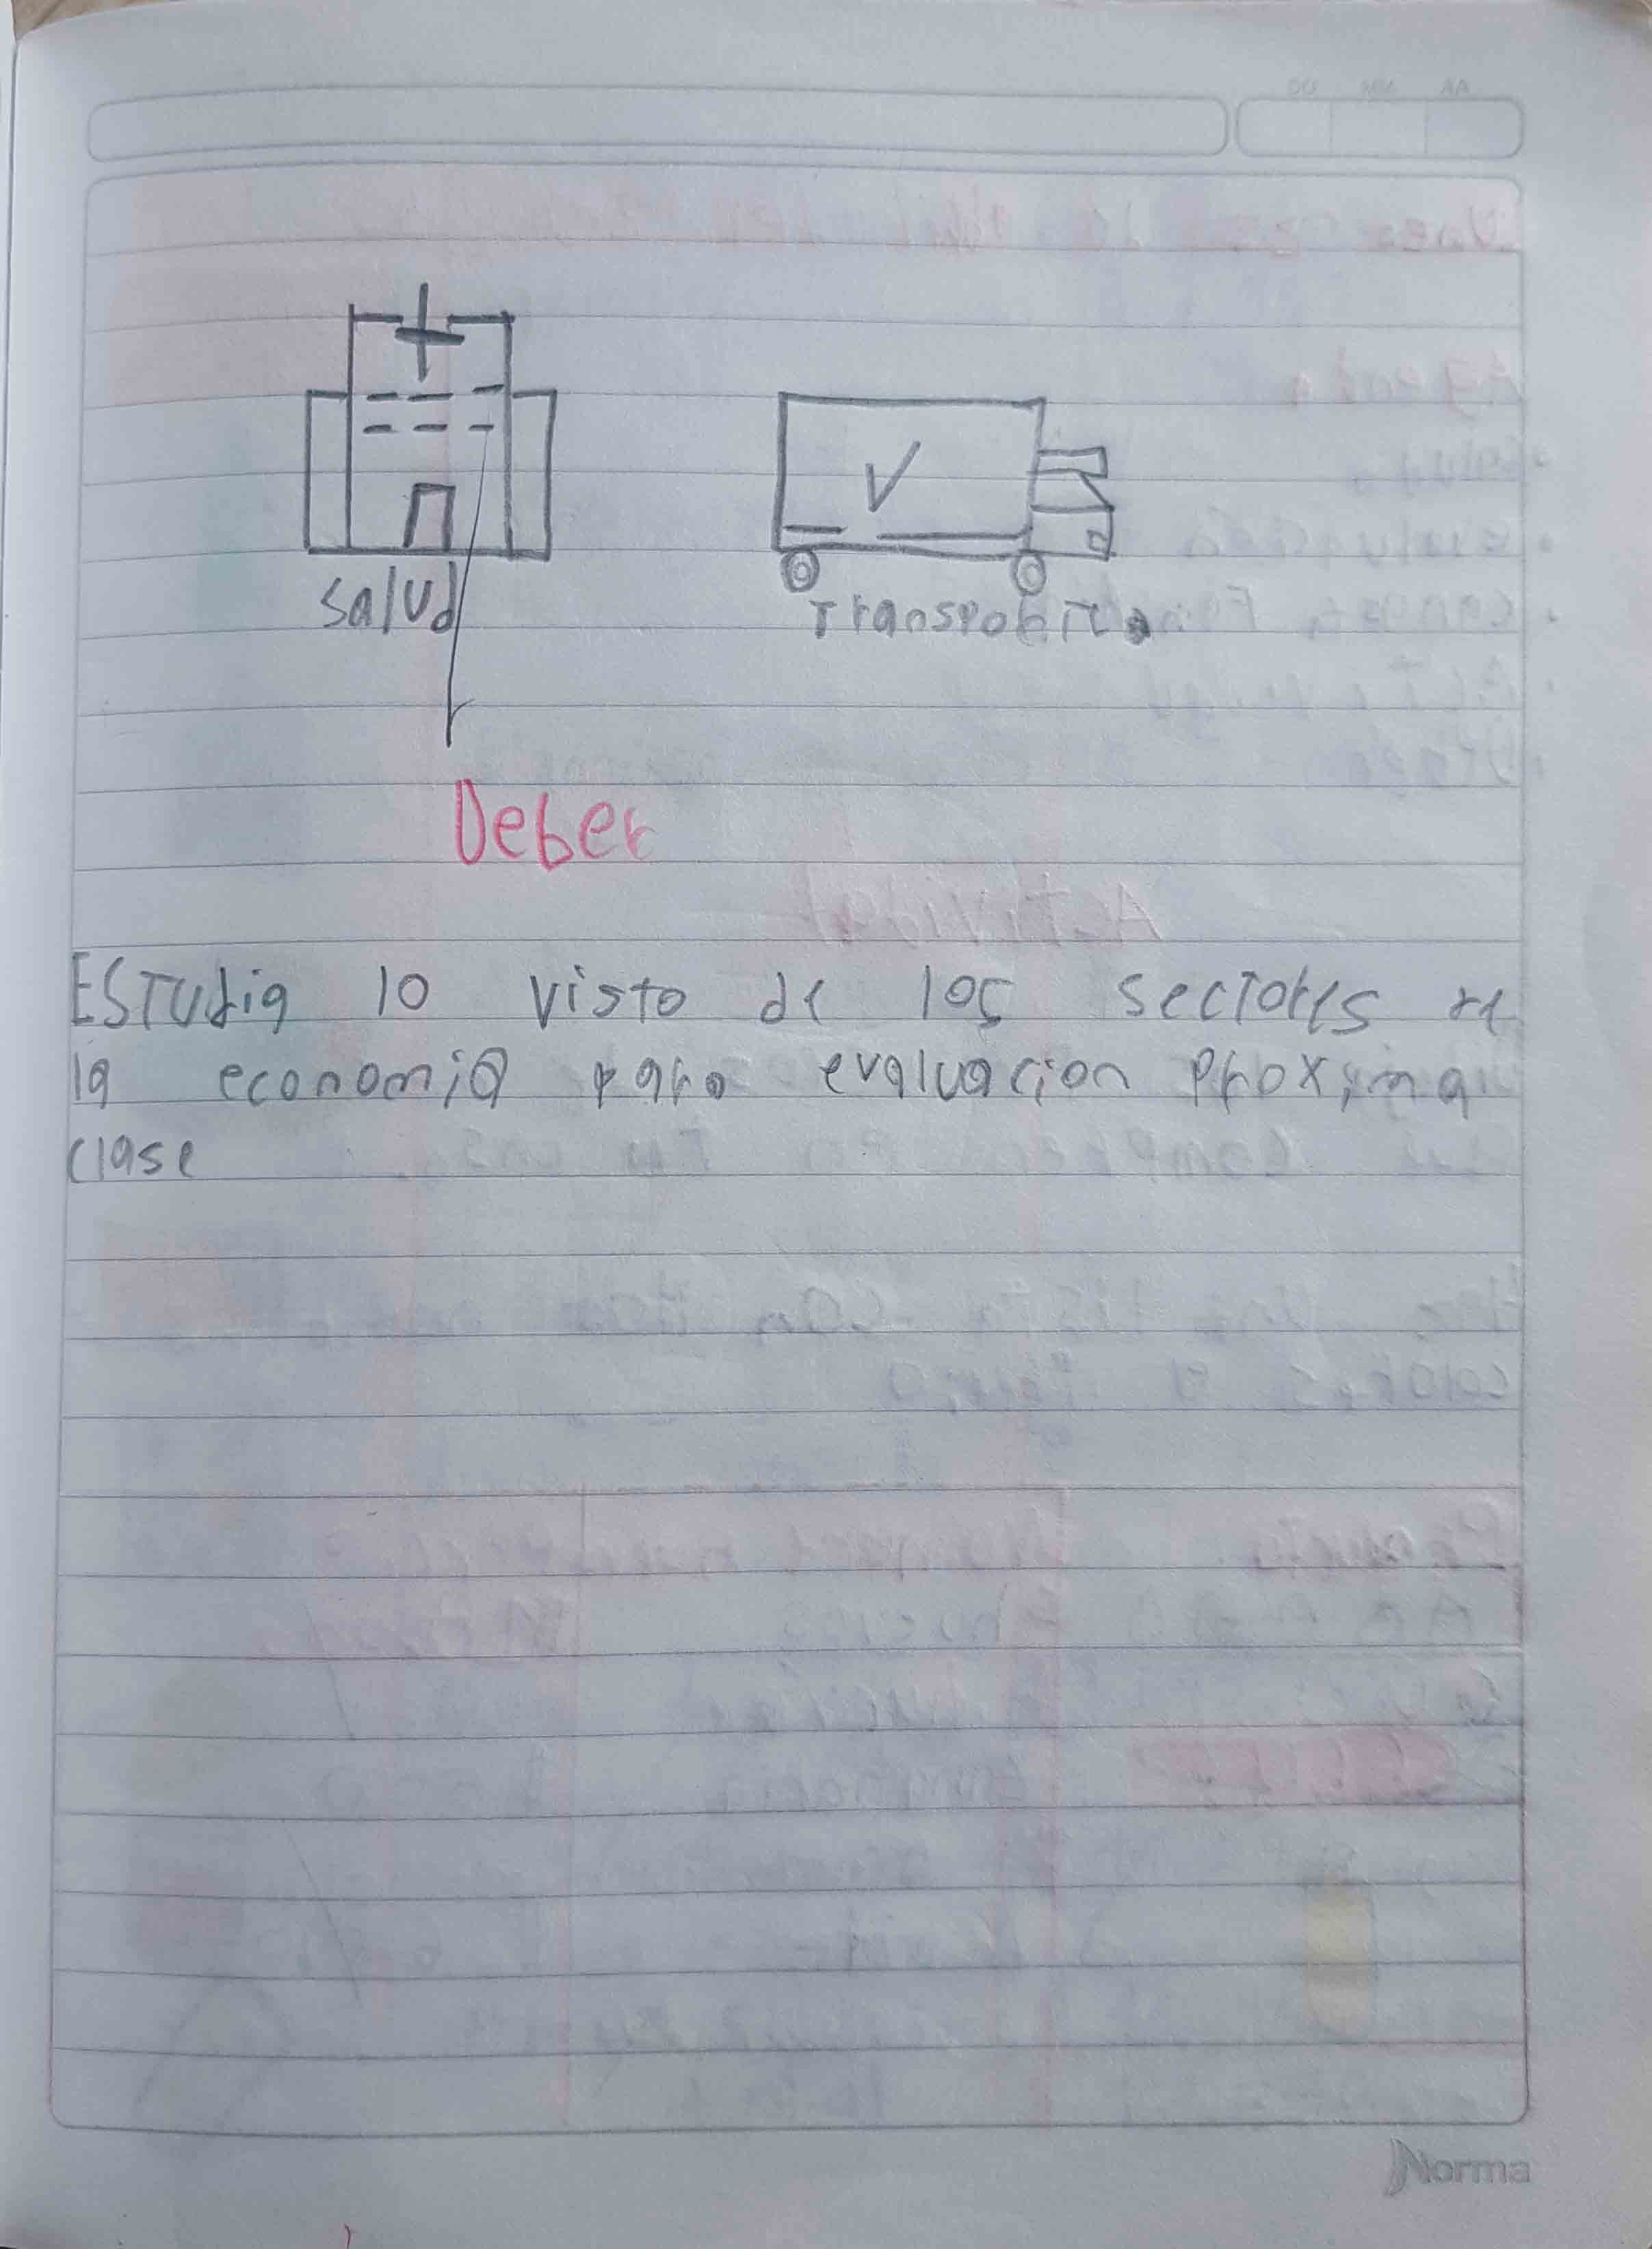 DD MM AA
salud
Transporte
Deber
ESTudia lo visto de los sectores de
la economia para evaluacion proxima
clase
Norma